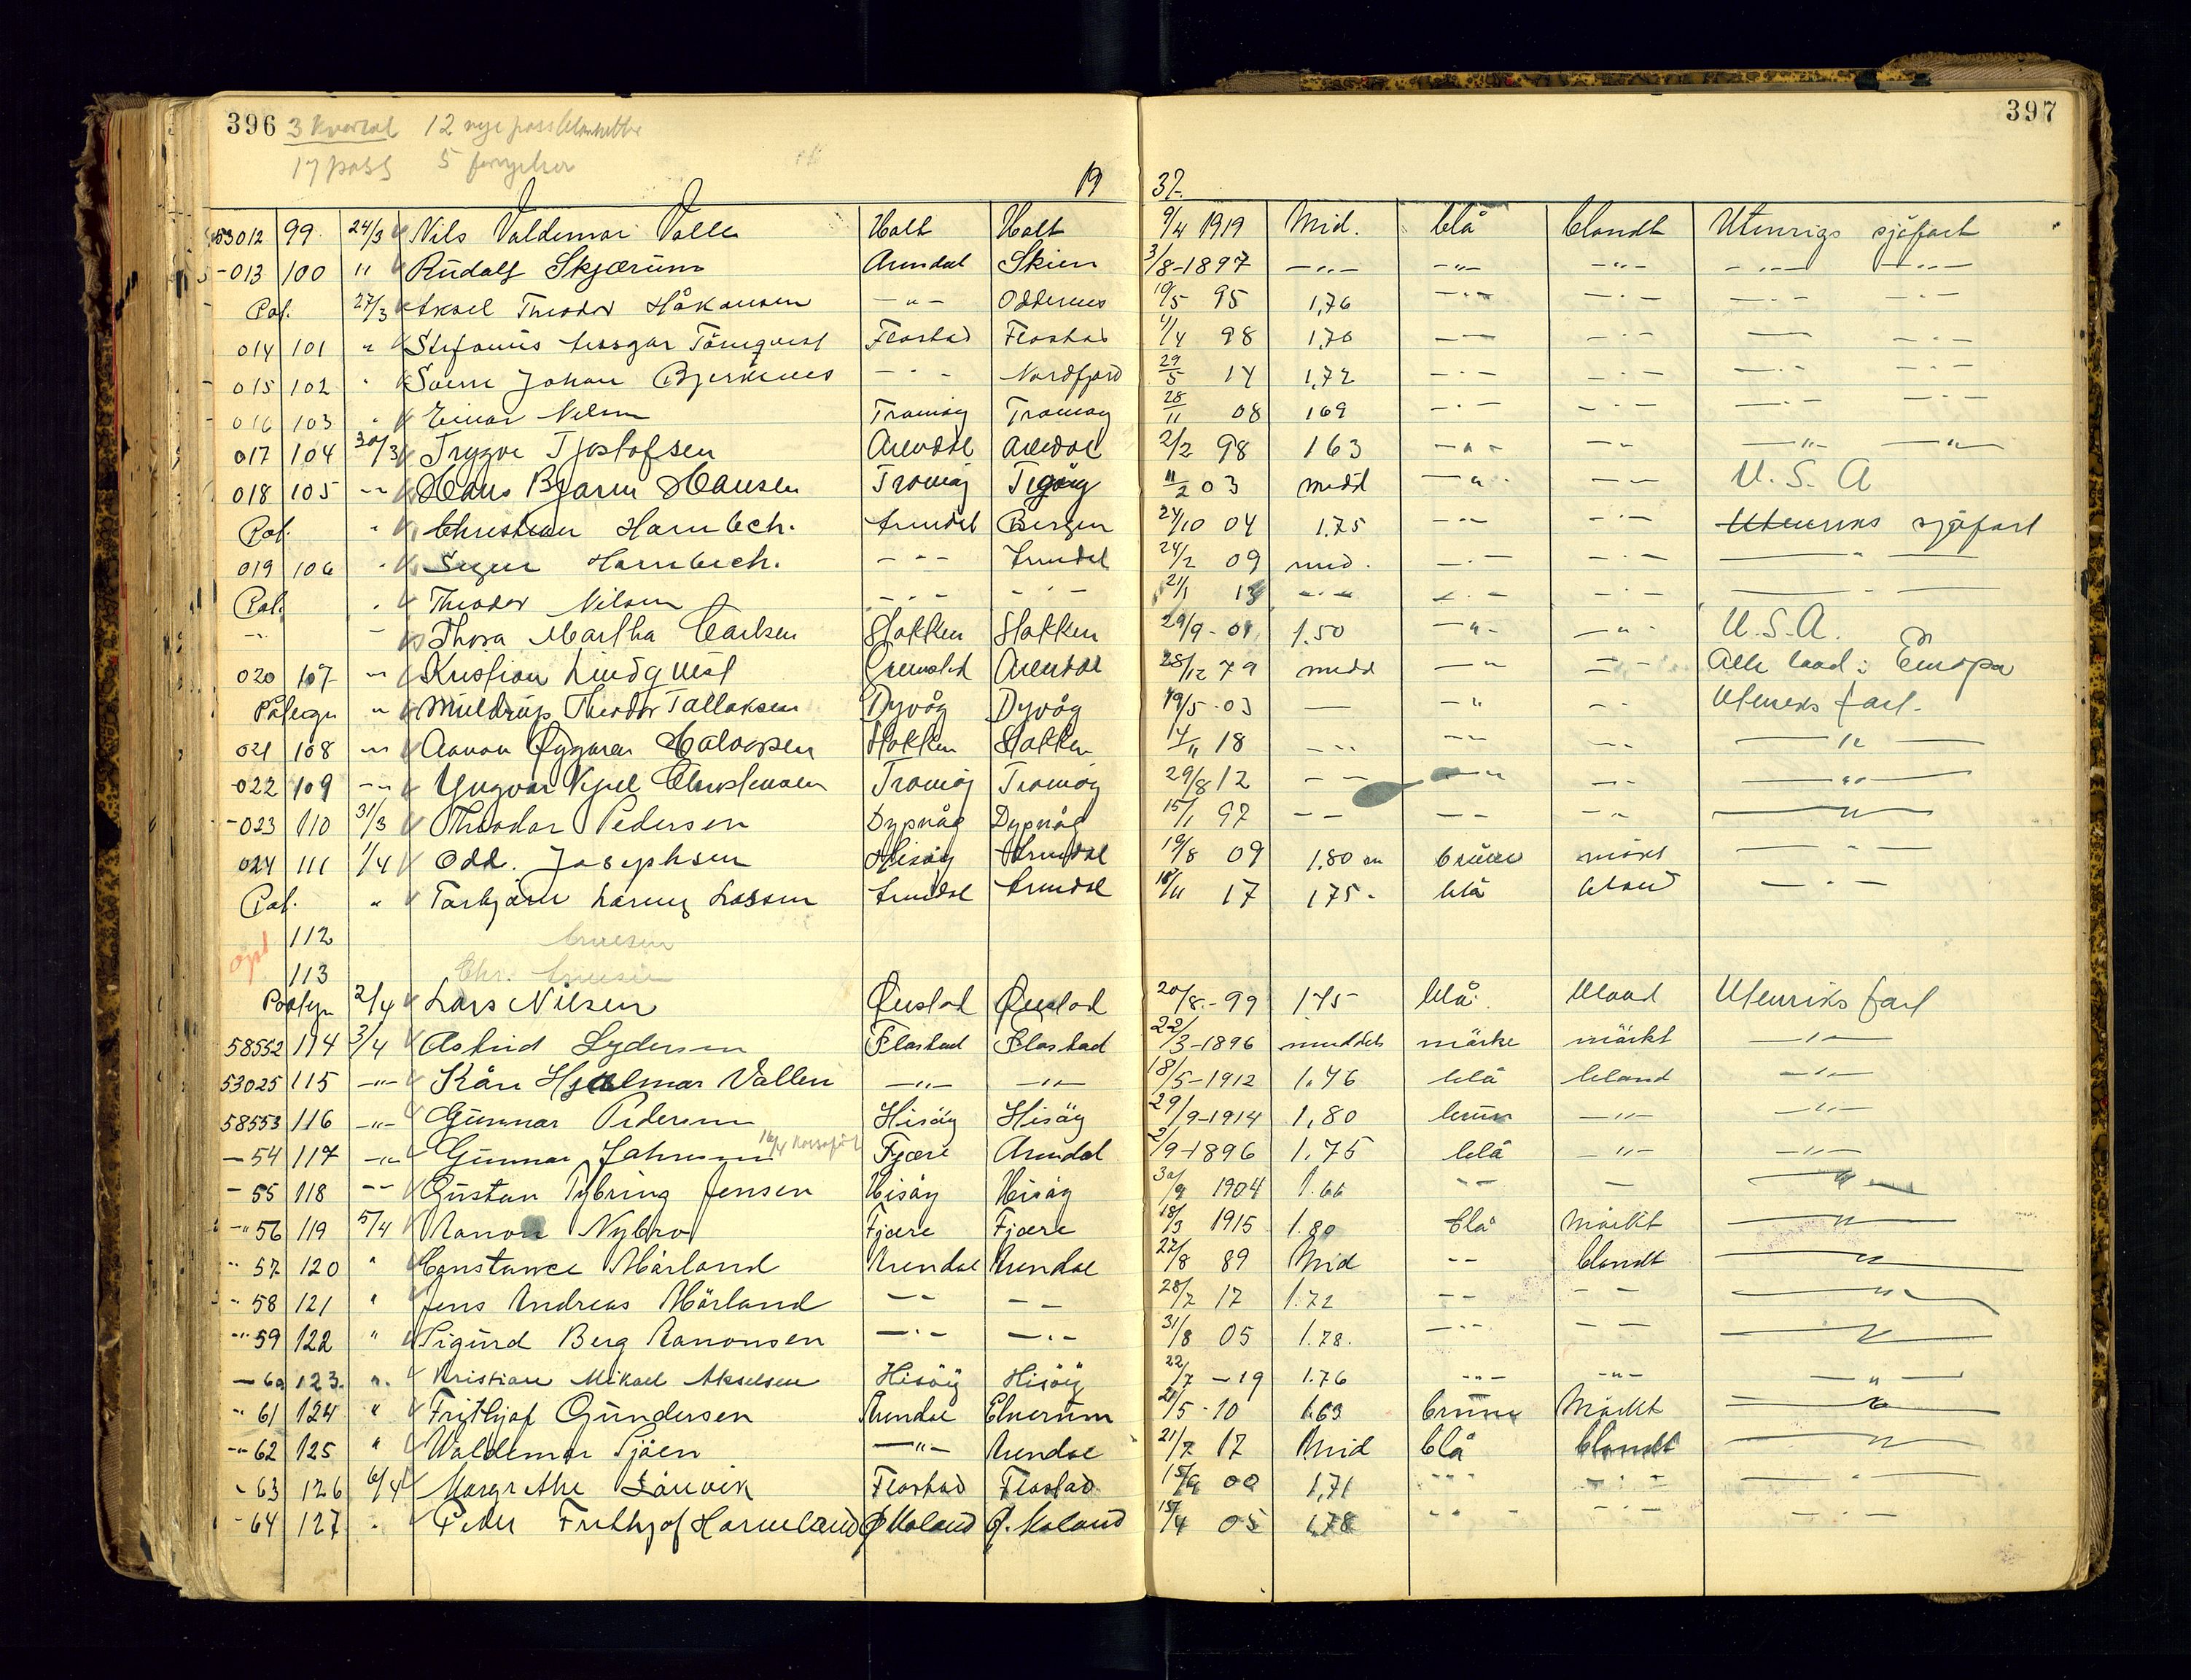 396 3 kvartal 12 nye passblanketter
397
17 pass 5 fornyelser
19 37.
53012 99 24/3 Nils Valdemar Valle Holt Holt 9/4 1919 Mid. blå blondt Utenrigs sjöfart
-013 100 " Rudolf Skjærum Arendal Skien 3/8-1897 -"- -"- -"- -"- -"-
Paf. 27/3 Aksel Theodor Håkonsen -"- Oddernes 10/5 95 1,76 -"- -"- -"- -"-
014 101 " Stefanus Ansgar Törnqvist Flostad Flostad 4/4 98 1,70 -"- -"- -"- -"-
015 102 " Sverre Johan Bjerknes -"- Nordfjord 29/5 14 1,72 -"- -"- -"- -"-
016 103 " Einar Nilsen Tromöy Tromöy 28/11 08 169 -"- -"- -"- -"-
017 104 30/3 Trygve Tjostofsen Arendal Arendal 2/2 98 163 -"- -"- -"- -"-
018 105 -"- Hans Bjarne Hansen Tromöj 11/2 03 midd -"- -"- U.S.A
Paf. " Christian Hornbech. Arendal Bergen 24/10 04 1.75 -"- -"- Utenriks sjöfart
019 106 " Signe Hornbech. -"- Arendal 24/2 09 mid. -"- -"- -"-
Paf. " Theodor Nilsen -"- -"- 21/1 13 -"- -"- -"- -"-
-"- - Thora Martha Carlsen Stokken Stokken 29/9-01 1.50 -"- -"- U.S.A.
020 107 -"- Kristian Lindqvist Grimstad Arendal 28/12 79 midd -"- -"- Alle land i Europa
Påtegn " Muldrup Theodor Tallaksen Dyvåg Dyvåg 19/5-03 - -"- -"- Utenriks fart.
021 108 -"- Aanon Gygmar Halvorsen Stokken Stokken 14/11 18 -"- -"- -"- -"-
-022 109 -"- Yngvar Kjell Christensen Tromöj Tromöj 29/8 12 -"- -"- -"- -"-
-023 110 31/3 Theodor Pedersen Dypvåg Dypvåg 15/1 97 -"- -"- -"- -"-
024 111 1/4 Odd. Josephsen Hisöy Arendal 19/8 09 1.80 m brune mörkt -"-
Paf. " Torbjörn Lorentz Larsen Arendal Arendal 18/11 17 175- blå blond -"-
112
opt 113 Chr.
Paategn 2/4 Lars Nilsen Öiestad Öiestad 20/8-99 175 blå blond Utenriks fart
58552 114 3/4 Astrid Lydersen Flostad Flostad 22/3-1896 middels mörke mörkt -"-
53025 115 -"- Kåre Hjalmar Vallen -"- -"- 18/5-1912 1.76 blå blond -"-
58553 116 -"- Gunnar Pedersen Hisöy Hisöy 29/9-1914 1,80 brun -"- -"-
-54 117 -"- Gunnar Johnsen Fjære Arendal 2/9-1896 1.75 blå -"- -"-
-55 118 -"- Gustav Tybring Jensen Hisöy Hisöy 30/9 1904 1.66 -"- - -"-
-"56 119 5/4 Aanon Nybro Fjære Fjære 18/3 1915 1.80 blå Mörkt -"-
-"57 120 " Constance Mörland Arendal Arendal 27/8 89 Mid -"- blondt -"-
-"58 121 " Jens Andreas Mörland -"- -"- 28/7 17 1.72 -"- -"- -"-
-"59 122 " Sigurd Berg Aanonsen -"- -"- 31/8 05 1.78. -"- -"- -"-
-60 123. ". Kristian Mikael Akselsen Hisöy Hisöy 22/7-19 1.76 -"- -"- -"-
-"61 124 " Frithjof Gundersen Arendal Elverum 21/5-10 1.63 brune Mörkt -"-
-"62 125 " Valdemar Sjöen -"- Arendal 21/7 17 Mid blå blondt -"-
-63 126 6/4 Margrethe Flostad Flostad 15/9 00 1,71 -"- -"- -"-
-64 127 " Peder Frithjof Harmeland Ø Moland Ø. Moland 15/4 05 1,78 -"- -"- -"-